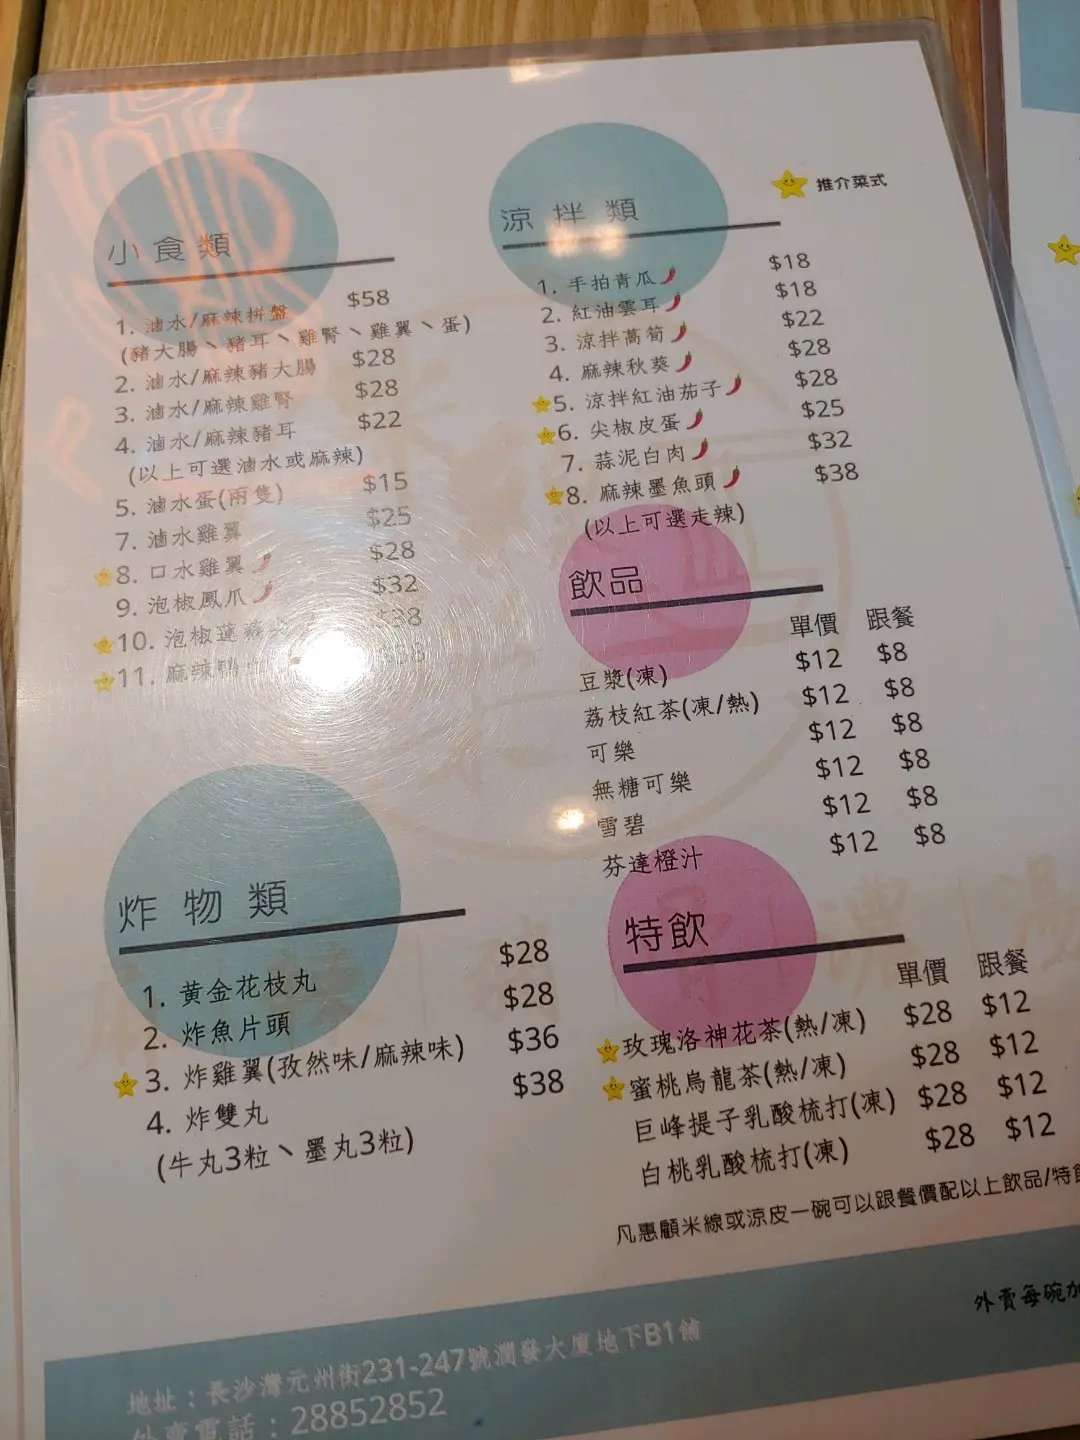 推介菜式
小食類
1. 滷水/麻辣拼盤 $58
(豬大腸、豬耳、雞腎、雞翼、蛋)
2. 滷水/麻辣豬大腸 $28
3. 滷水/麻辣雞腎 $28
4. 滷水/麻辣豬耳 $22
(以上可選滷水或麻辣)
5. 滷水蛋(兩隻) $15
7. 滷水雞翼 $25
8. 口水雞翼 $28
9. 泡椒鳳爪 $32
10. 泡椒蓮 $38
11. 麻辣鴨
涼拌類
1. 手拍青瓜 $18
2. 紅油雲耳 $18
3. 涼拌萵筍 $22
4. 麻辣秋葵 $28
5. 涼拌紅油茄子 $28
6. 尖椒皮蛋 $25
7. 蒜泥白肉 $32
8. 麻辣墨魚頭 $38
(以上可選走辣)
飲品
單價 跟餐
豆漿(凍) $12 $8
荔枝紅茶(凍/熱) $12 $8
可樂 $12 $8
無糖可樂 $12 $8
雪碧 $12 $8
芬達橙汁 $12 $8
炸物類
1. 黄金花枝丸 $28
2. 炸魚片頭 $28
3. 炸雞翼(孜然味/麻辣味) $36
4. 炸雙丸 $38
(牛丸3粒、墨丸3粒)
特飲
單價 跟餐
玫瑰洛神花茶(熱/凍) $28 $12
蜜桃烏龍茶(熱/凍) $28 $12
巨峰提子乳酸梳打(凍) $28 $12
白桃乳酸梳打(凍) $28 $12
凡惠顧米線或涼皮一碗可以跟餐價配以上飲品/特飲
外賣每碗加
地址：長沙灣元州街231-247號潤發大廈地下B1舖
外賣電話：28852852